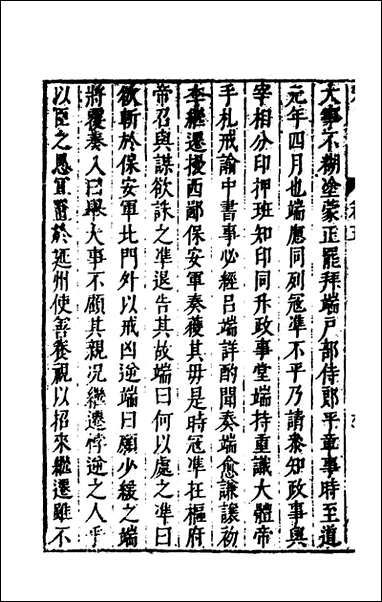 大事不糊塗蒙正罷拜端戸部侍郎平章事時至道
元年四月也端慮同列冦準不平乃請叅知政事與
宰相分印押班知印同升政事堂端持重識大體帝
手札戒諭中書事必經吕端詳酌聞奏端愈謙讓初
李繼遷擾西鄙保安軍奏穫其母是時冦凖在樞府
帝召與謀欲誅之凖退告其故端曰何以處之凖曰
欲斬於保安軍北門外以戒凶逆端曰願少緩之端
將覆奏入曰舉大事不顧其親况繼遷悖逆之人乎
以臣之愚宜置於延州使善養視以招來繼遷雖不